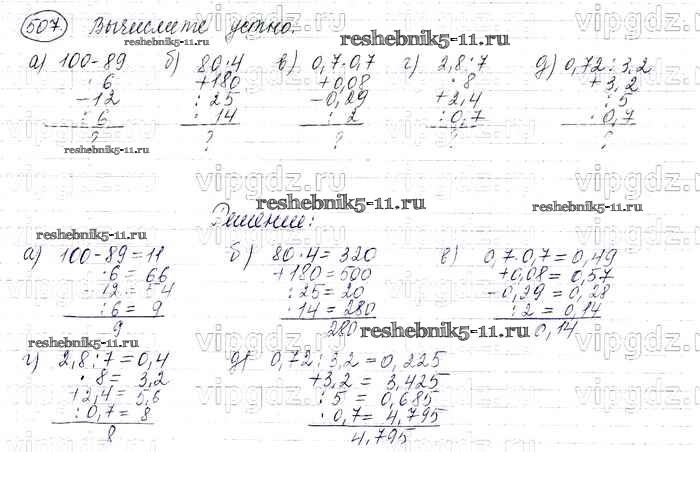 507 Вычислите устно.
vipgdz.ru vipgdz.ru vipgdz.ru vipgdz.ru
reshebnik5-11.ru reshebnik5-11.ru
а) 100-89 б) 80·4 в) 0,7·0,7 г) 2,8:7 д) 0,72:3,2
·6 +180 +0,08 ·8 +3,2
-12 :25 -0,29 +2,4 :5
:6 ·14 :2 :0,7 ·0,7
? ? ? ? ?
reshebnik5-11.ru
vipgdz.ru vipgdz.ru vipgdz.ru vipgdz.ru
reshebnik5-11.ru reshebnik5-11.ru
Решение:
reshebnik5-11.ru
а) 100-89=11 б) 80·4=320 в) 0,7·0,7=0,49
·6=66 +180=500 +0,08=0,57
-12=54 :25=20 -0,29=0,28
:6=9 ·14=280 :2=0,14
9 280 0,14
reshebnik5-11.ru reshebnik5-11.ru
г) 2,8:7=0,4 д) 0,72:3,2=0,225
·8=3,2 +3,2=3,425
+2,4=5,6 :5=0,685
:0,7=8 ·0,7=4,795
8 4,795
vipgdz.ru vipgdz.ru vipgdz.ru vipgdz.ru